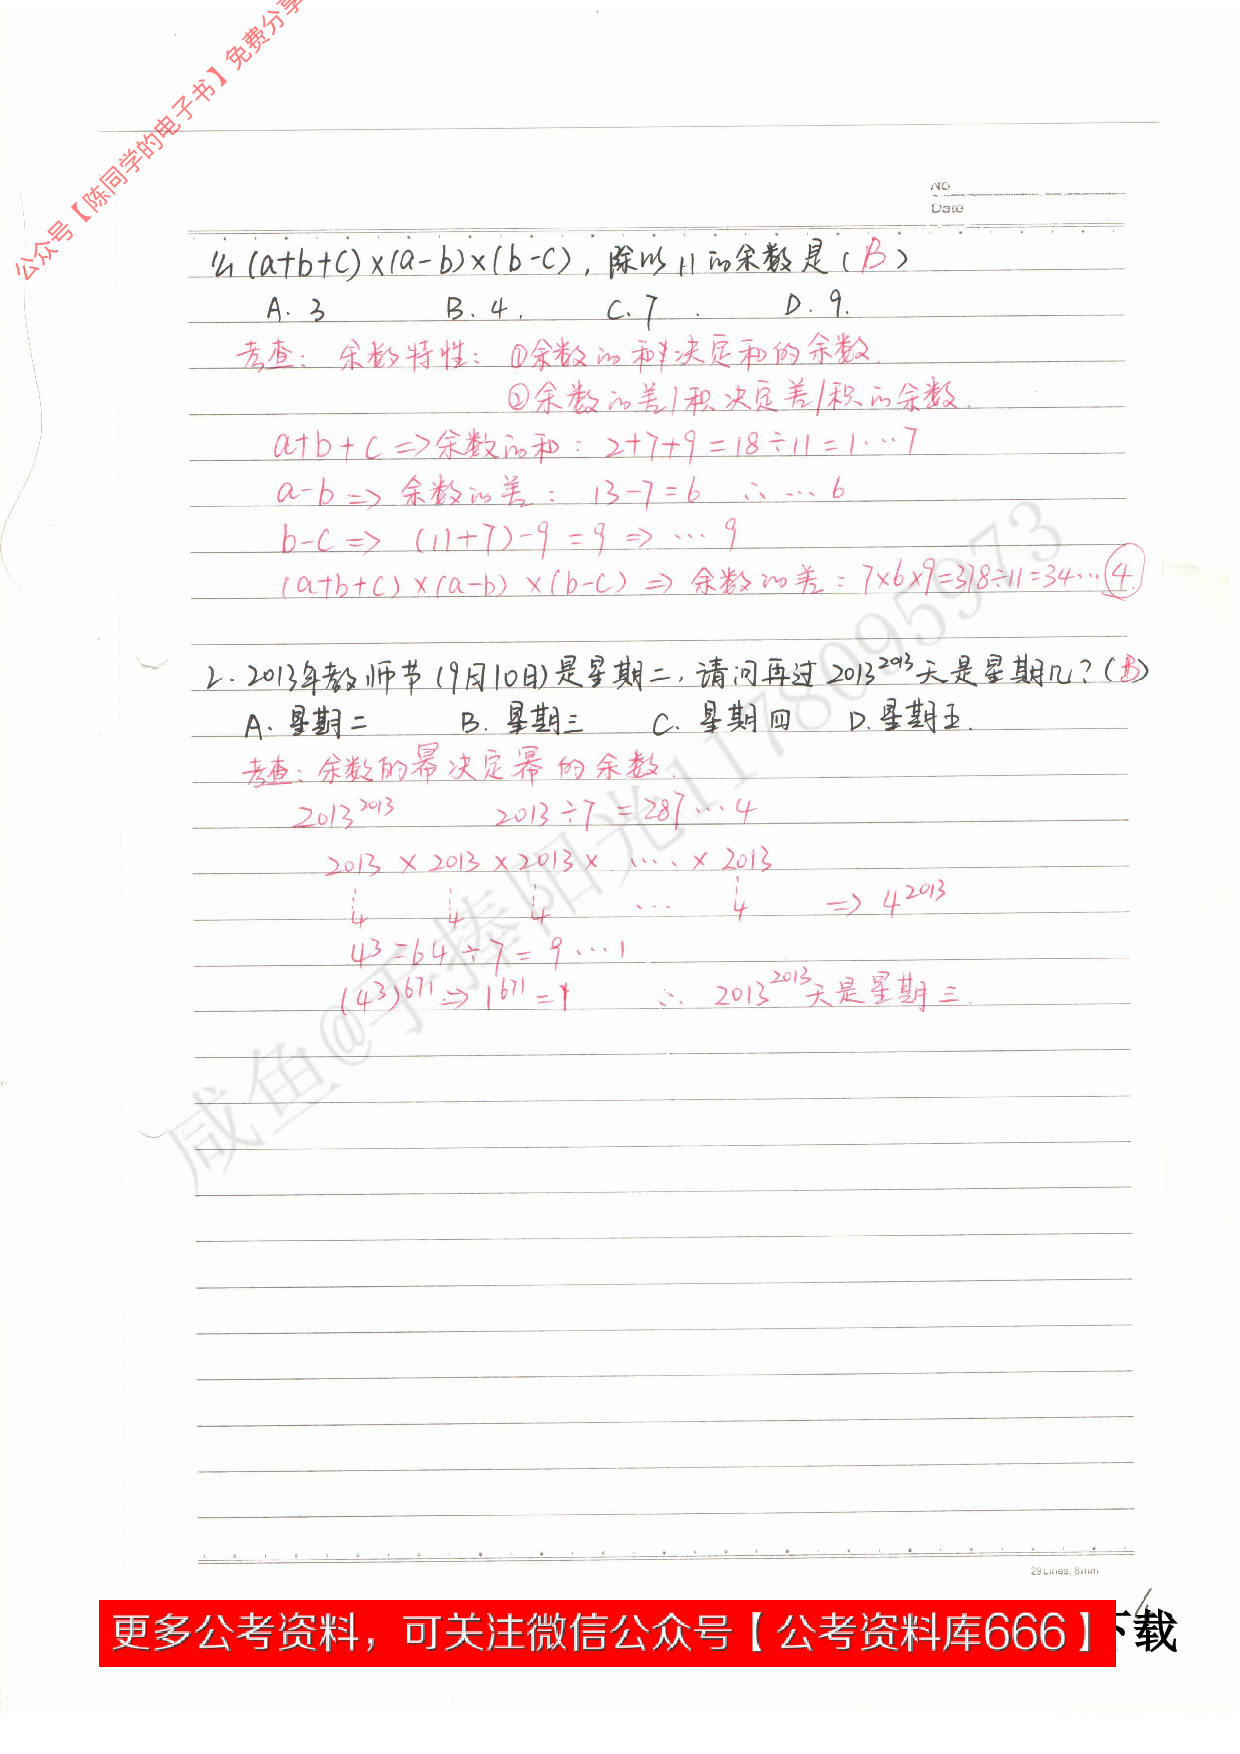 公众号【陈同学的电子书】免费分享
NO
Date
么(a+b+c)×(a-b)×(b-c),除以11的余数是(B)
A. 3 B. 4. C. 7 D. 9.
考查: 余数特性: ①余数的和决定和的余数.
②余数的差/积决定差/积的余数.
a+b+c => 余数的和: 2+7+9=18÷11=1…7
a-b => 余数的差: 13-7=6 ∴ … 6
b-c => (11+7)-9=9 => … 9
(a+b+c)×(a-b)×(b-c) => 余数的差: 7×6×9=378÷11=34…④
2. 2013年教师节(9月10日)是星期二,请问再过2013²⁰¹³天是星期几?(B)
A. 星期二 B. 星期三 C. 星期四 D. 星期五.
考查: 余数的幂决定幂的余数.
2013²⁰¹³ 2013÷7=287…4
2013 × 2013 × 2013 × …. × 2013
4 4 4 … 4 => 4²⁰¹³
4³=64÷7=9…1
(4³)⁶⁷¹ => 1⁶⁷¹=1 ∴ 2013²⁰¹³天是星期三.
咸鱼@手捧阳光1178095973
29Lines, 8mm
更多公考资料,可关注微信公众号【公考资料库666】下载